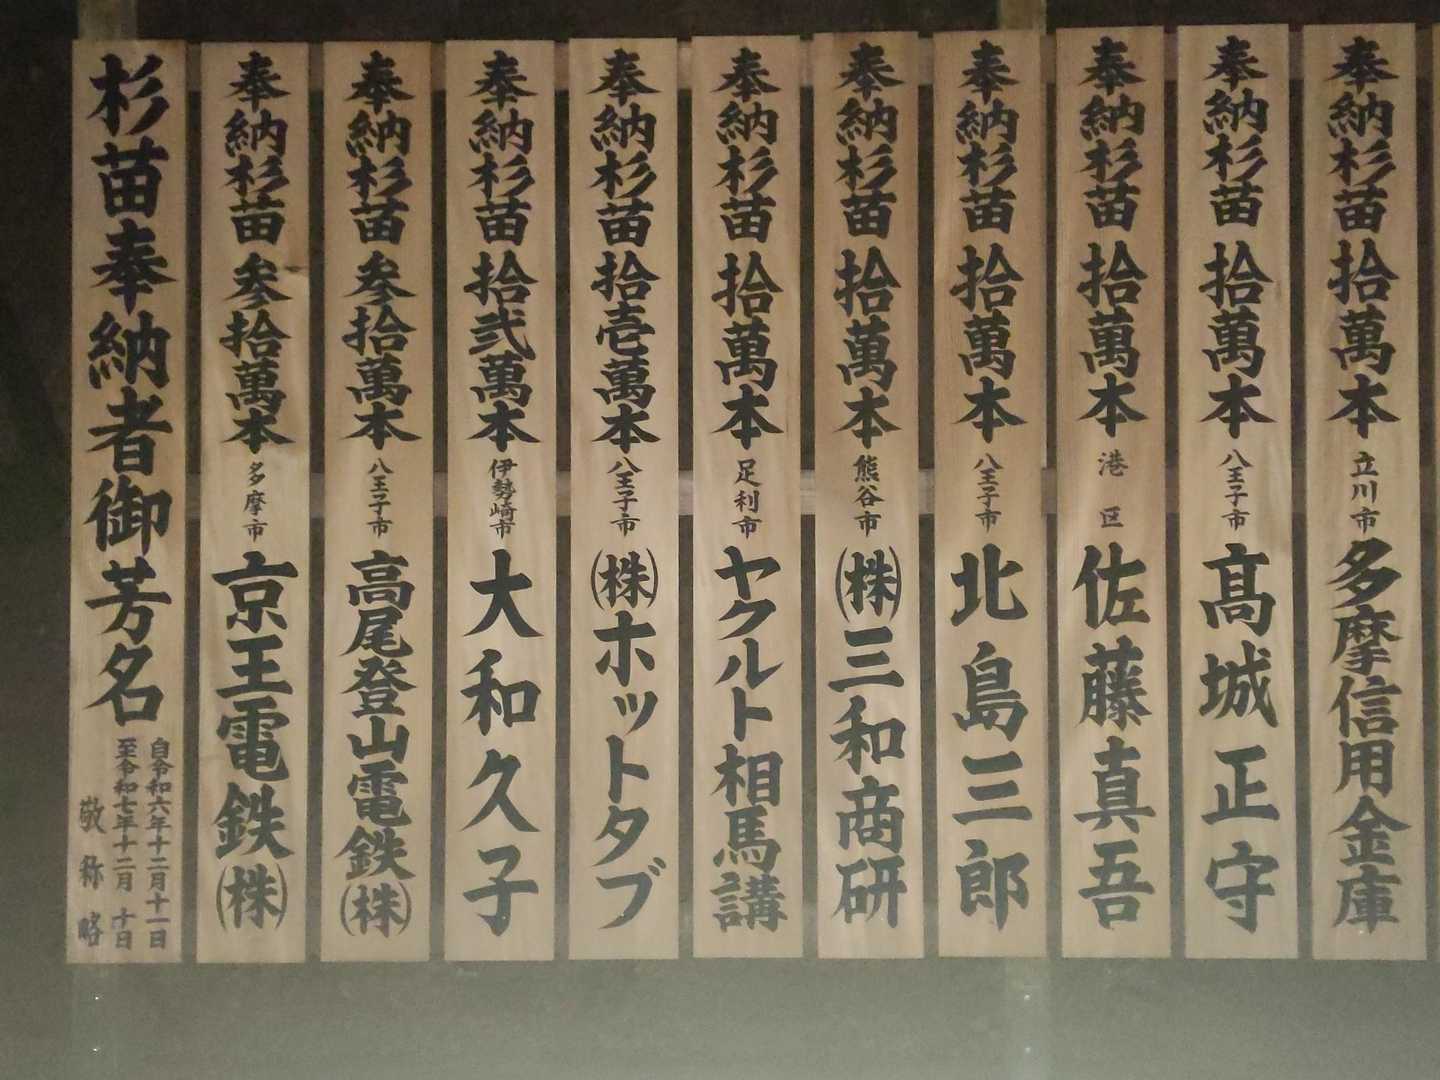 杉苗奉納者御芳名
自令和六年十二月十一日
至令和七年十二月十日
敬称略
奉納杉苗参拾萬本 多摩市 京王電鉄㈱
奉納杉苗参拾萬本 八王子市 高尾登山電鉄㈱
奉納杉苗拾弐萬本 伊勢崎市 大和久子
奉納杉苗拾壱萬本 八王子市 ㈱ホットタブ
奉納杉苗拾萬本 足利市 ヤクルト相馬講
奉納杉苗拾萬本 熊谷市 ㈱三和商研
奉納杉苗拾萬本 八王子市 北島三郎
奉納杉苗拾萬本 港区 佐藤真吾
奉納杉苗拾萬本 八王子市 髙城正守
奉納杉苗拾萬本 立川市 多摩信用金庫